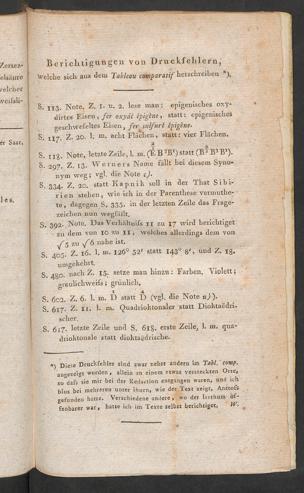 Berichtigungen von Druckfehlern,
welche sich aus dem Tableau comparatif herschreiben *).
S. 113. Note, Z. 1. u. 2. lese man: epigenisches oxy-
dirtes Eisen, fer oxydé épigène, statt: epigenisches
geschwefeltes Eisen, fer sulfuré épigène.
S. 117. Z. 20. l. m. acht Flächen, statt: vier Flächen.
S. 118. Note, letzte Zeile, l. m. statt
S. 297. Z. 13. Werners Name fällt bei diesem Syno-
nym weg; vgl. die Note c).
S. 334. Z. 20. statt Kapnik soll in der That Sibi-
rien stehen, wie ich in der Parenthese vermuthe-
te, dagegen S. 335. in der letzten Zeile das Frage-
zeichen nun wegfällt.
S. 392. Note. Das Verhältniss 11 zu 17 wird berichtiget
zu dem von 10 zu 11, welches allerdings dem von
√5 zu √6 nahe ist.
S. 405. Z. 16. l. m. 126° 52' statt 143° 8', und Z. 18.
umgekehrt.
S. 480. nach Z. 15. setze man hinzu: Farben, Violett;
graulichweiss; grünlich.
S. 602. Z. 6. l. m. D statt (vgl. die Note u).
S. 617. Z. 11. l. m. Quadrioktonaler statt Dioktaëdri-
scher.
S. 617. letzte Zeile und S. 618. erste Zeile, l. m. qua-
drioktonale statt dioktaëdrische.
*) Diese Druckfehler sind zwar neher andern im Tabl. comp.
angezeigt worden, allein an einem etwas versteckten Orte,
so dass sie mir bei der Redaction entgangen waren, und ich
blos bei mehreren unter ihnen, wie der Text zeigt, Anstoss
gefunden hatte. Verschiedene andere, wo der Irrthum of-
fenbarer war, hatte ich im Texte selbst berichtiget. W.